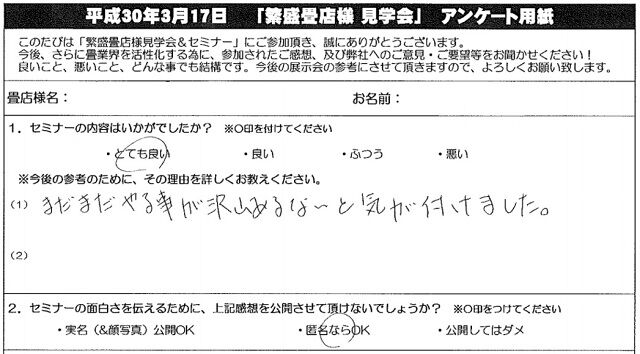 平成30年3月17日 「繁盛畳店様 見学会」 アンケート用紙
このたびは「繁盛畳店様見学会&セミナー」にご参加頂き、誠にありがとうございます。
今後、さらに畳業界を活性化する為に、参加されたご感想、及び弊社へのご意見・ご要望等をお聞かせください!
良いこと、悪いこと、どんな事でも結構です。今後の展示会の参考にさせて頂きますので、よろしくお願い致します。
畳店様名: お名前:
1.セミナーの内容はいかがでしたか? ※○印を付けてください
・とても良い ・良い ・ふつう ・悪い
※今後の参考のために、その理由を詳しくお教えください。
(1) まだまだやる事が沢山あるな〜と気が付けました。
(2)
2.セミナーの面白さを伝えるために、上記感想を公開させて頂けないでしょうか? ※○印をつけてください
・実名(&顔写真)公開OK ・匿名ならOK ・公開してはダメ